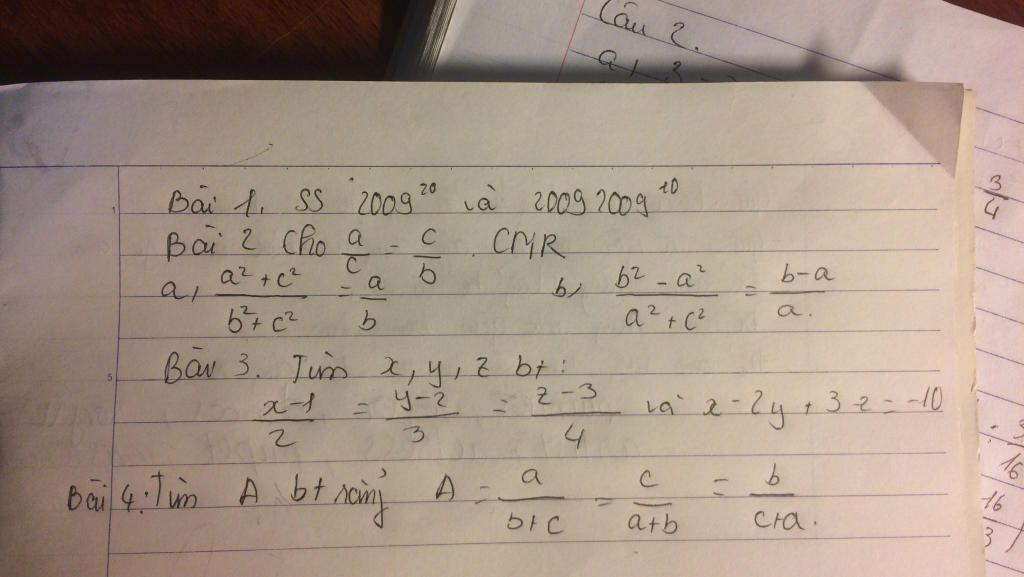 Câu 2.
Bài 1. SS 2009²⁰ và 20092009¹⁰
Bài 2 Cho a/c = c/b. CMR
a, (a² + c²)/(b² + c²) = a/b b, (b² - a²)/(a² + c²) = (b-a)/a.
Bài 3. Tìm x, y, z bt:
(x-1)/2 = (y-2)/3 = (z-3)/4 và x - 2y + 3z = -10
Bài 4: Tìm A bt rằng A = a/(b+c) = c/(a+b) = b/(c+a).
3/4
16
16/3